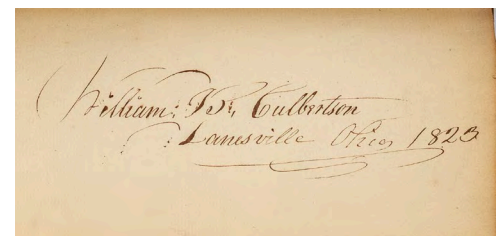 William: Dr. Culbertson
: Zanesville Ohio 1823